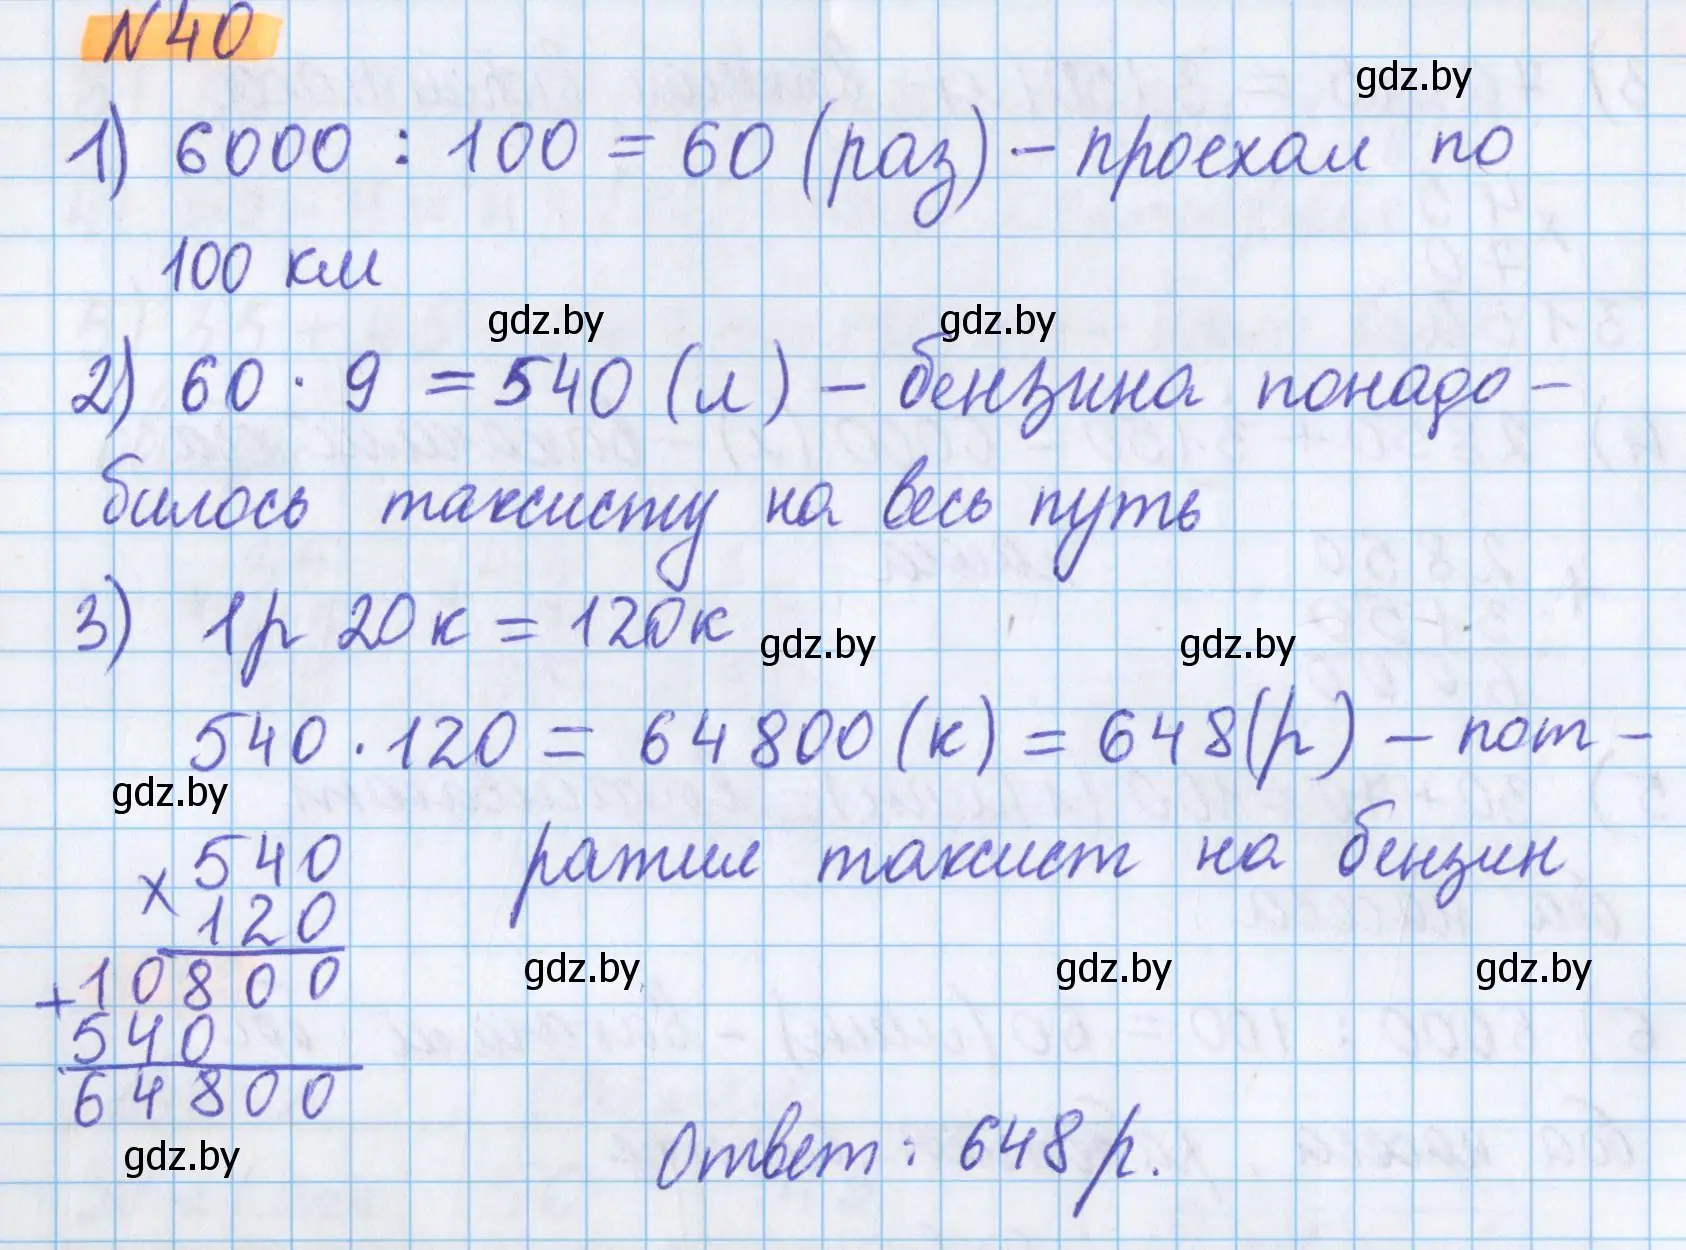 №40
gdz.by
1) 6000 : 100 = 60 (раз) – проехал по
100 км
gdz.by gdz.by
2) 60 · 9 = 540 (л) – бензина понадо-
билось таксисту на весь путь
3) 1р 20к = 120к
gdz.by gdz.by
540 · 120 = 64800 (к) = 648 (р) – пот-
gdz.by
ратил таксист на бензин
× 540
120
gdz.by gdz.by gdz.by
+ 10800
540
64800
Ответ: 648 р.
gdz.by